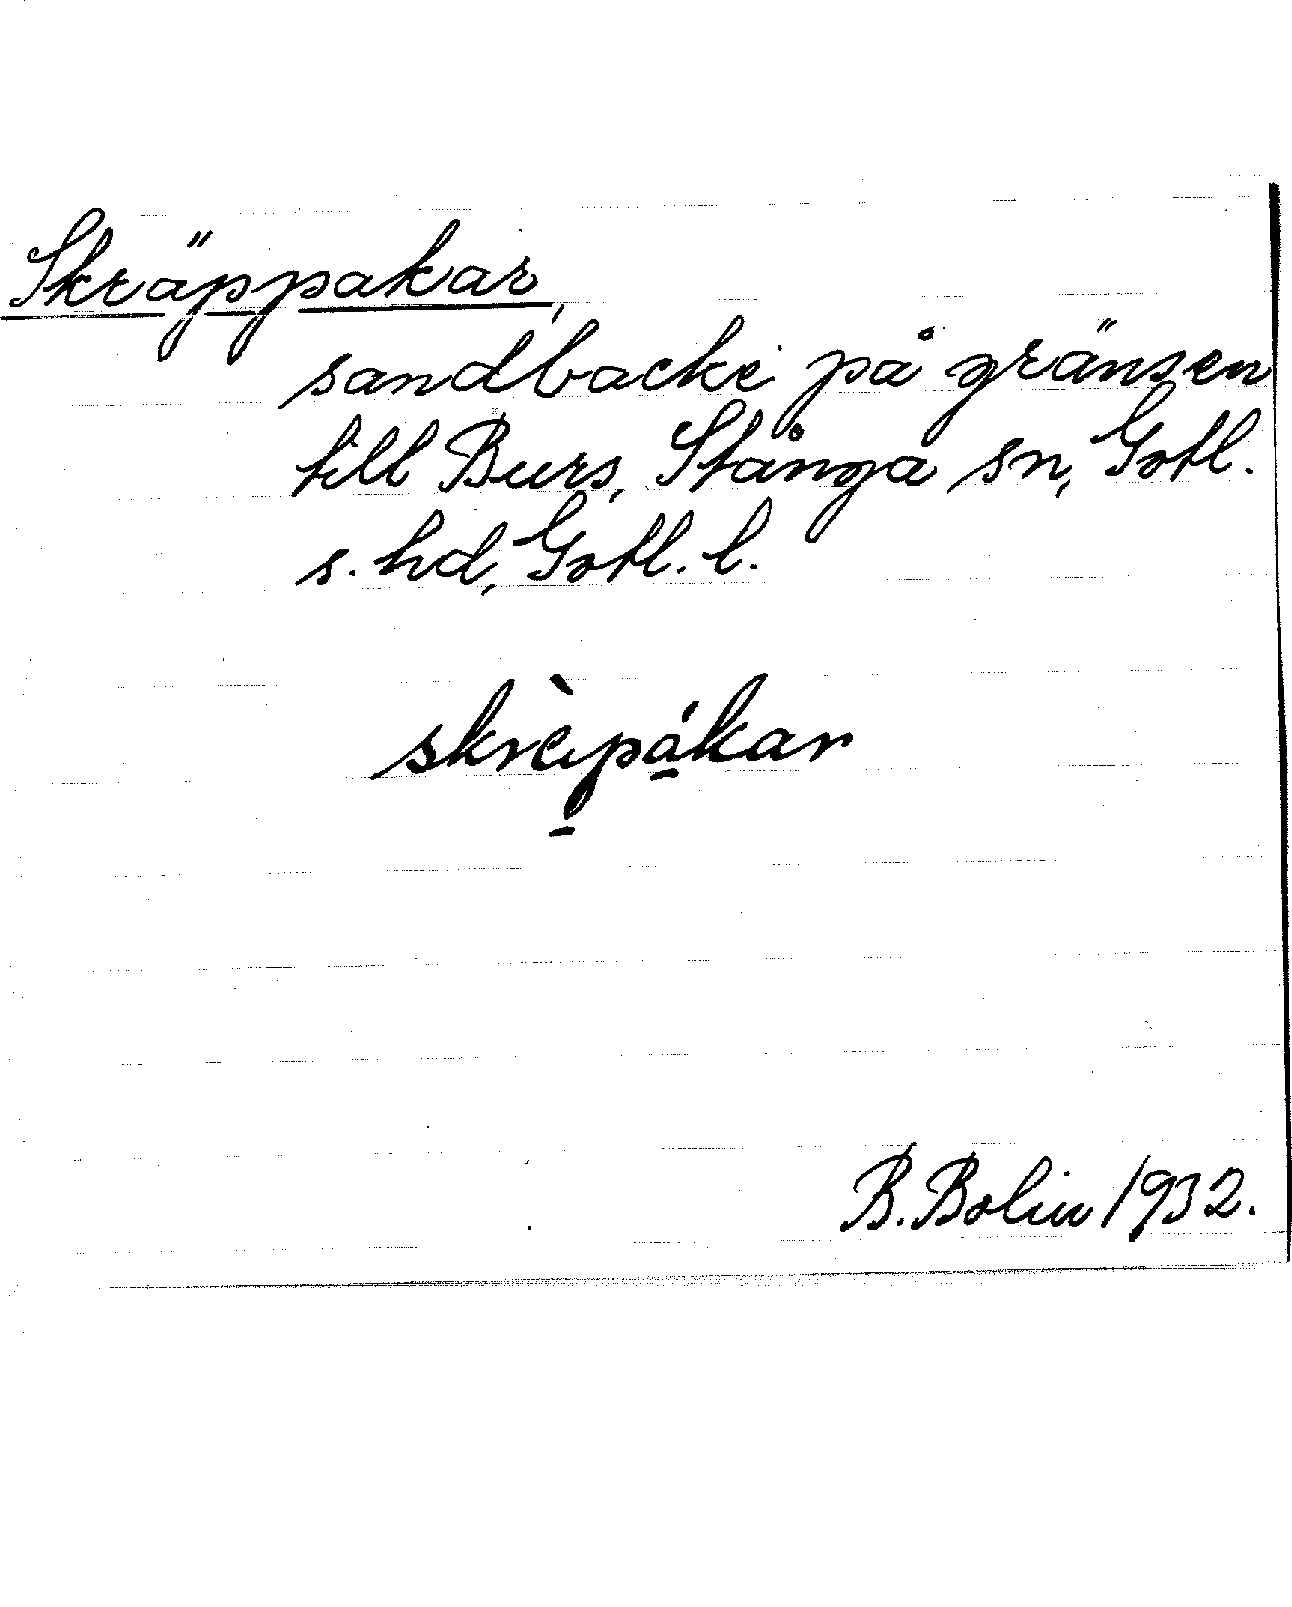 Skräppakar,
sandbacke på gränsen
till Burs, Stånga sn, Gotl.
s. hd, Gotl. l.
skrèp̠á̠kar
B. Bolin 1932.